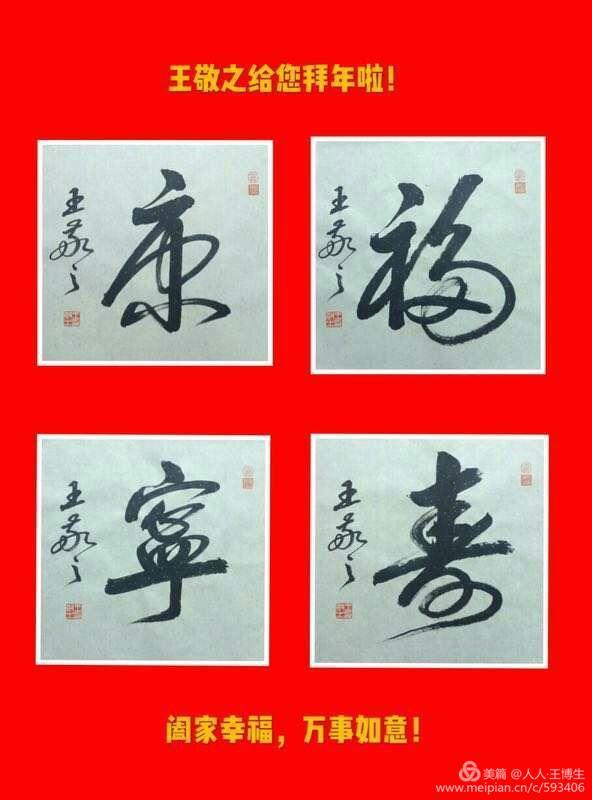 王敬之给您拜年啦！
福
王敬之
寿
王敬之
康
王敬之
寧
王敬之
阖家幸福，万事如意！
美篇 @人人·王博生
www.meipian.cn/c/593406